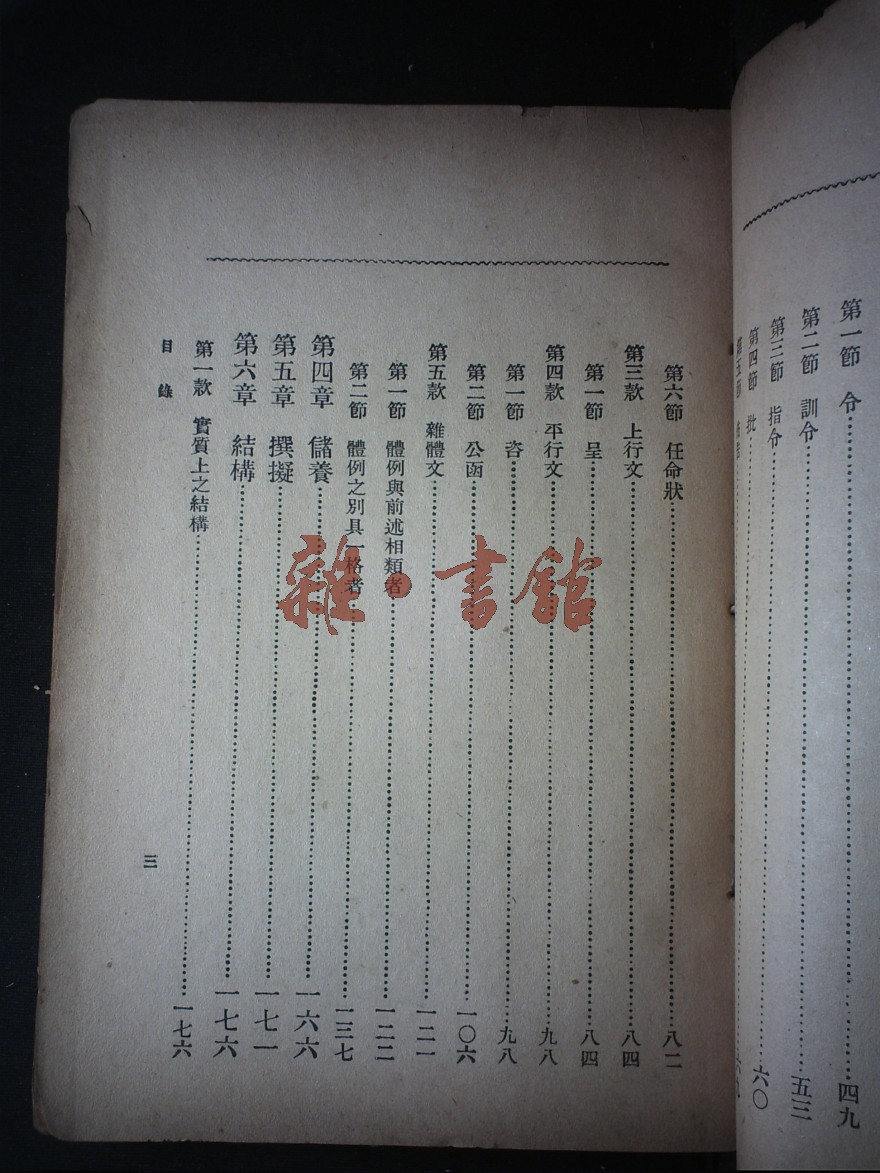 第一節 令 四九
第二節 訓令 五三
第三節 指令 六〇
第四節 批
第六節 任命狀 八二
第三款 上行文 八四
第一節 呈 八四
第四款 平行文 九八
第一節 咨 九八
第二節 公函 一〇六
第五款 雜體文 一二一
第一節 體例與前述相類者 一二二
第二節 體例之別具一格者 一三七
第四章 儲養 一六六
第五章 撰擬 一七一
第六章 結構 一七六
第一款 實質上之結構 一七六
目錄
三
雜·書館